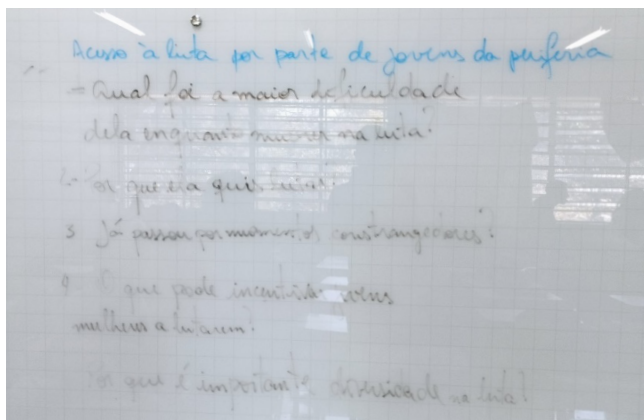 Acesso à luta por parte de jovens da periferia
- Qual foi a maior dificuldade
dela enquanto mulher na luta?
2- Por que ela quis lutar?
3 Já passou por momentos constrangedores?
O que pode incentivar jovens
mulheres a lutarem?
Por que é importante diversidade na luta?